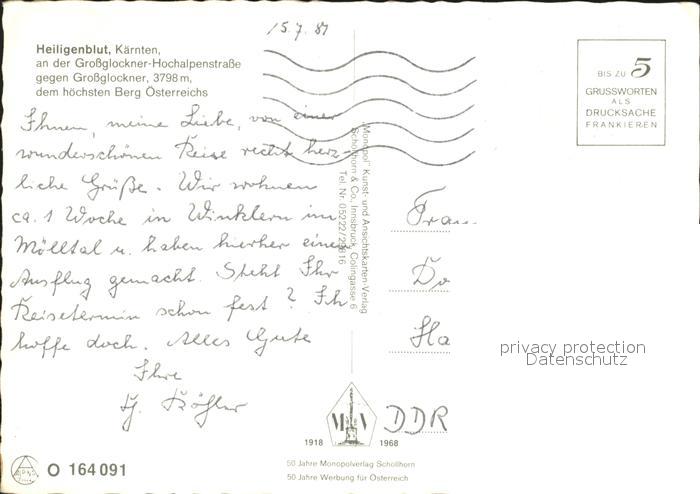 15.7.81
Heiligenblut, Kärnten,
an der Großglockner-Hochalpenstraße
gegen Großglockner, 3798 m,
dem höchsten Berg Österreichs
BIS ZU 5
GRUSSWORTEN
ALS
DRUCKSACHE
FRANKIEREN
Ihnen, meine Liebe, von einer
wunderschönen Reise recht herz-
liche Grüße. Wir wohnen
ca. 1 Woche in Winklern im
Mölltal u. haben hierher einen
Ausflug gemacht. Steht Ihr
Reisetermin schon fest? Ich
hoffe doch. Alles Gute
Ihre
„Monopol" Kunst- und Ansichtskarten-Verlag
Schöllhorn & Co., Innsbruck, Colingasse 6
Tel. Nr. 05222/
Frau
Do
Ha
DDR
privacy protection
Datenschutz
1918 1968
50 Jahre Monopolverlag Schöllhorn
50 Jahre Werbung für Österreich
O 164 091